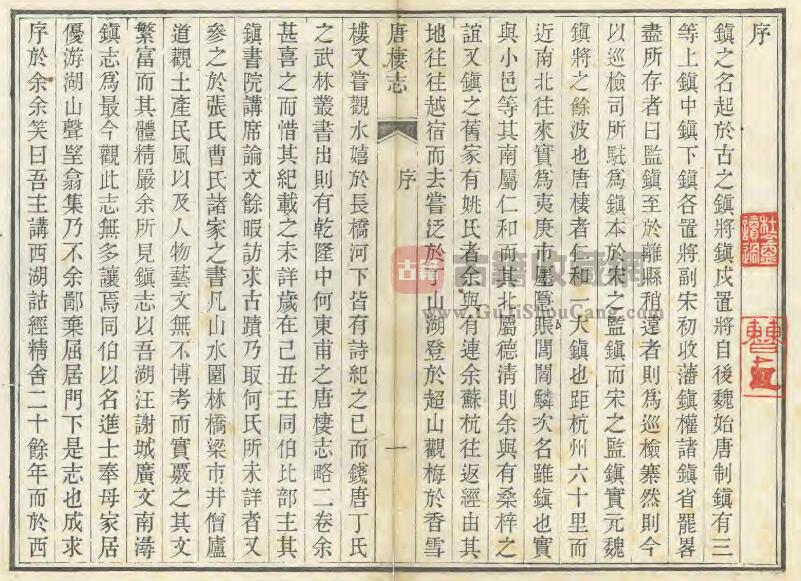 序
鎮之名起於古之鎮將鎮戍置將自後魏始唐制鎮有三
等上鎮中鎮下鎮各置將副宋初收藩鎮權諸鎮省罷畧
盡所存者曰監鎮至於離縣稍遠者則爲巡檢寨然則今
以巡檢司所駐爲鎮本於宋之監鎮而宋之監鎮實元魏
鎮將之餘波也唐棲者仁和一大鎮也距杭州六十里而
近南北往來實爲夷庚市廛釃賬閭閻鱗次名雖鎮也實
與小邑等其南屬仁和而其北屬德清則余與有桑梓之
誼又鎮之舊家有姚氏者余與有連余蘇杭往返經由其
地往往越宿而去嘗泛於丁山湖登於超山觀梅於香雪
唐棲志
序
一
樓又嘗觀水嬉於長橋河下皆有詩紀之已而錢唐丁氏
之武林叢書出則有乾隆中何東甫之唐棲志略二卷余
甚喜之而惜其紀載之未詳歲在己丑王同伯比部主其
鎮書院講席論文餘暇訪求古蹟乃取何氏所未詳者又
參之於張氏曹氏諸家之書凡山水園林橋梁市井僧廬
道觀土產民風以及人物藝文無不博考而實覈之其文
繁富而其體精嚴余所見鎮志以吾湖汪謝城廣文南潯
鎮志爲最今觀此志無多讓焉同伯以名進士奉母家居
優游湖山聲望翕集乃不余鄙棄屈居門下是志也成求
序於余余笑曰吾主講西湖詁經精舍二十餘年而於西
古籍收藏網
www.GuJiShouCang.com